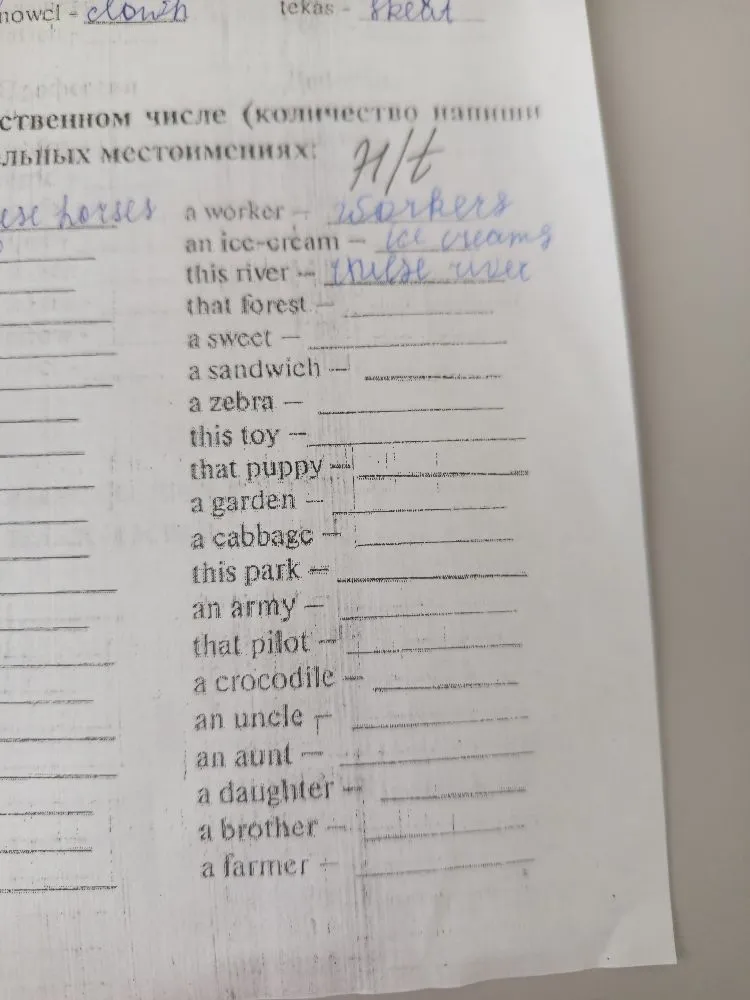 nowcl - clown tekas - skeat
ственном числе (количество напиши
льных местоимениях: H/t
ese horses a worker – workers
an ice-cream – ice creams
this river – these river
that forest –
a sweet –
a sandwich –
a zebra –
this toy –
that puppy –
a garden –
a cabbage –
this park –
an army –
that pilot –
a crocodile –
an uncle –
an aunt –
a daughter –
a brother –
a farmer –